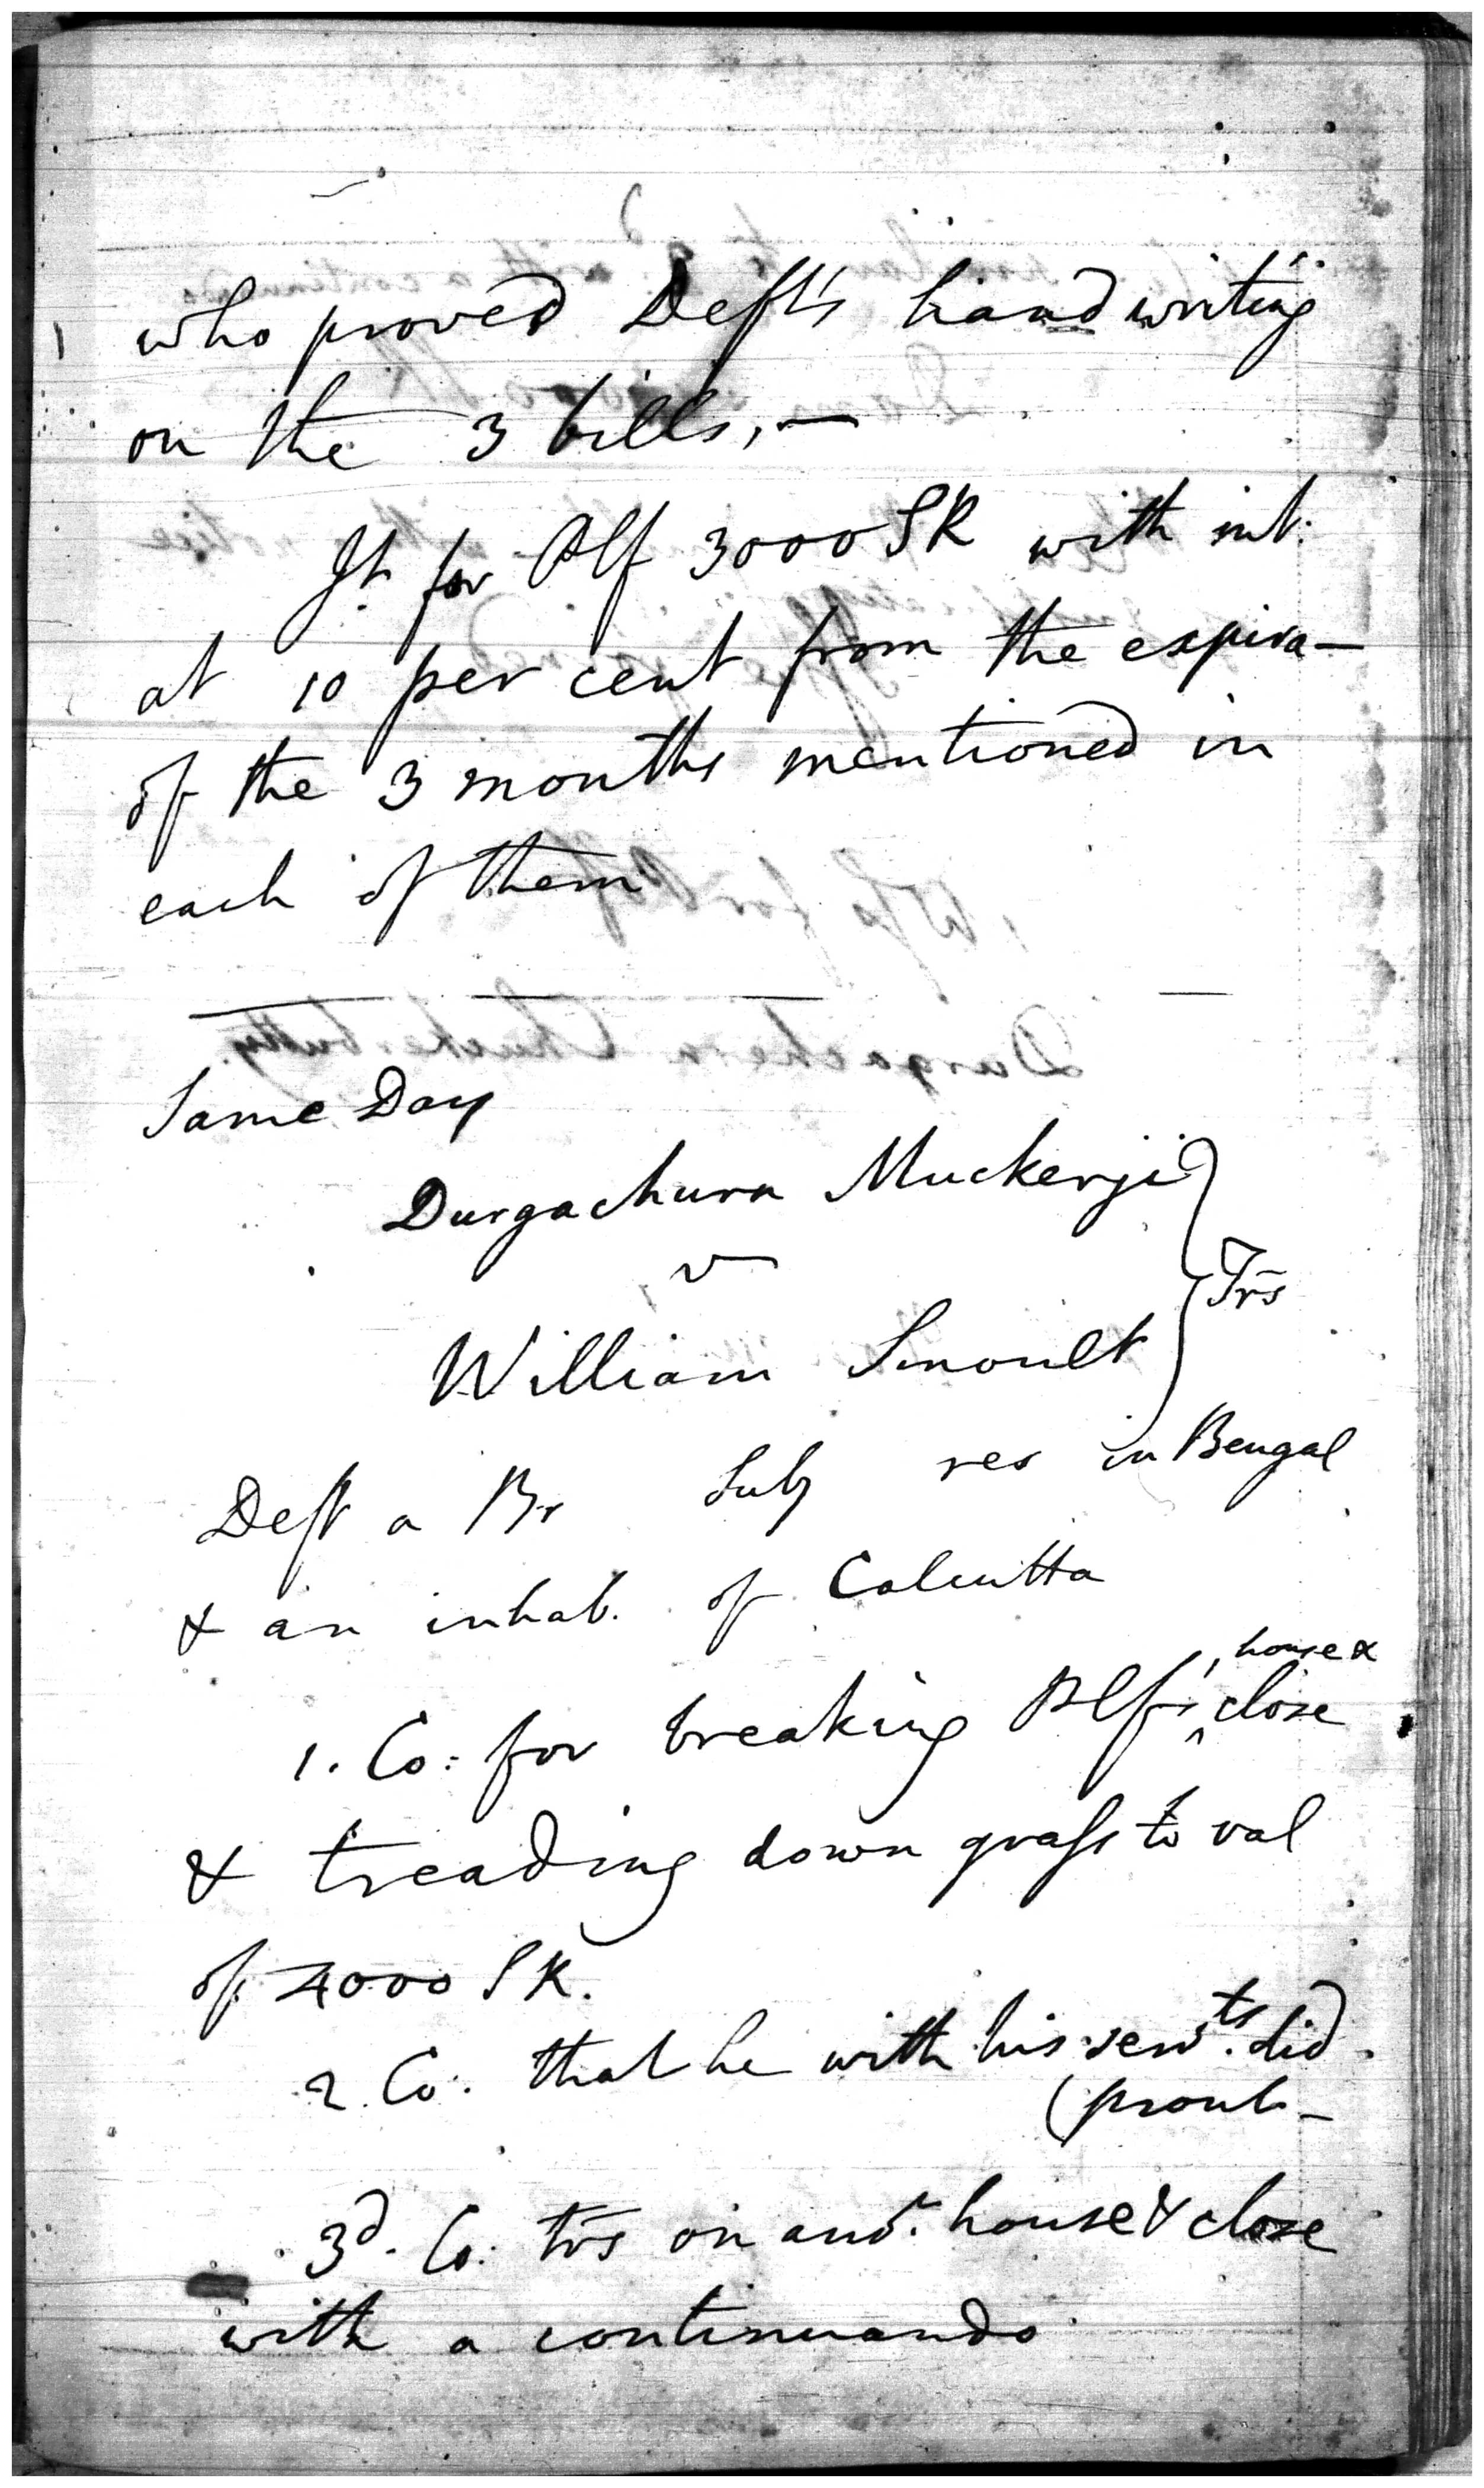 who proved Deft's handwriting
on the 3 bills, —
Jt. for Plf 3000 SR with int:
at 10 per cent from the expira—
of the 3 months mentioned in
each of them
Same Day
Durgachurn Muckerji
v
Trs
William Smoult
Deft a Br Subj res in Bengal
& an inhab. of Calcutta
1. Co: for breaking Plf's house & close
& treading down grass to val
of 4000 SR.
2. Co: that he with his servts. did
(prout—
3d. Co: trs on anor. house & close
with a continuando